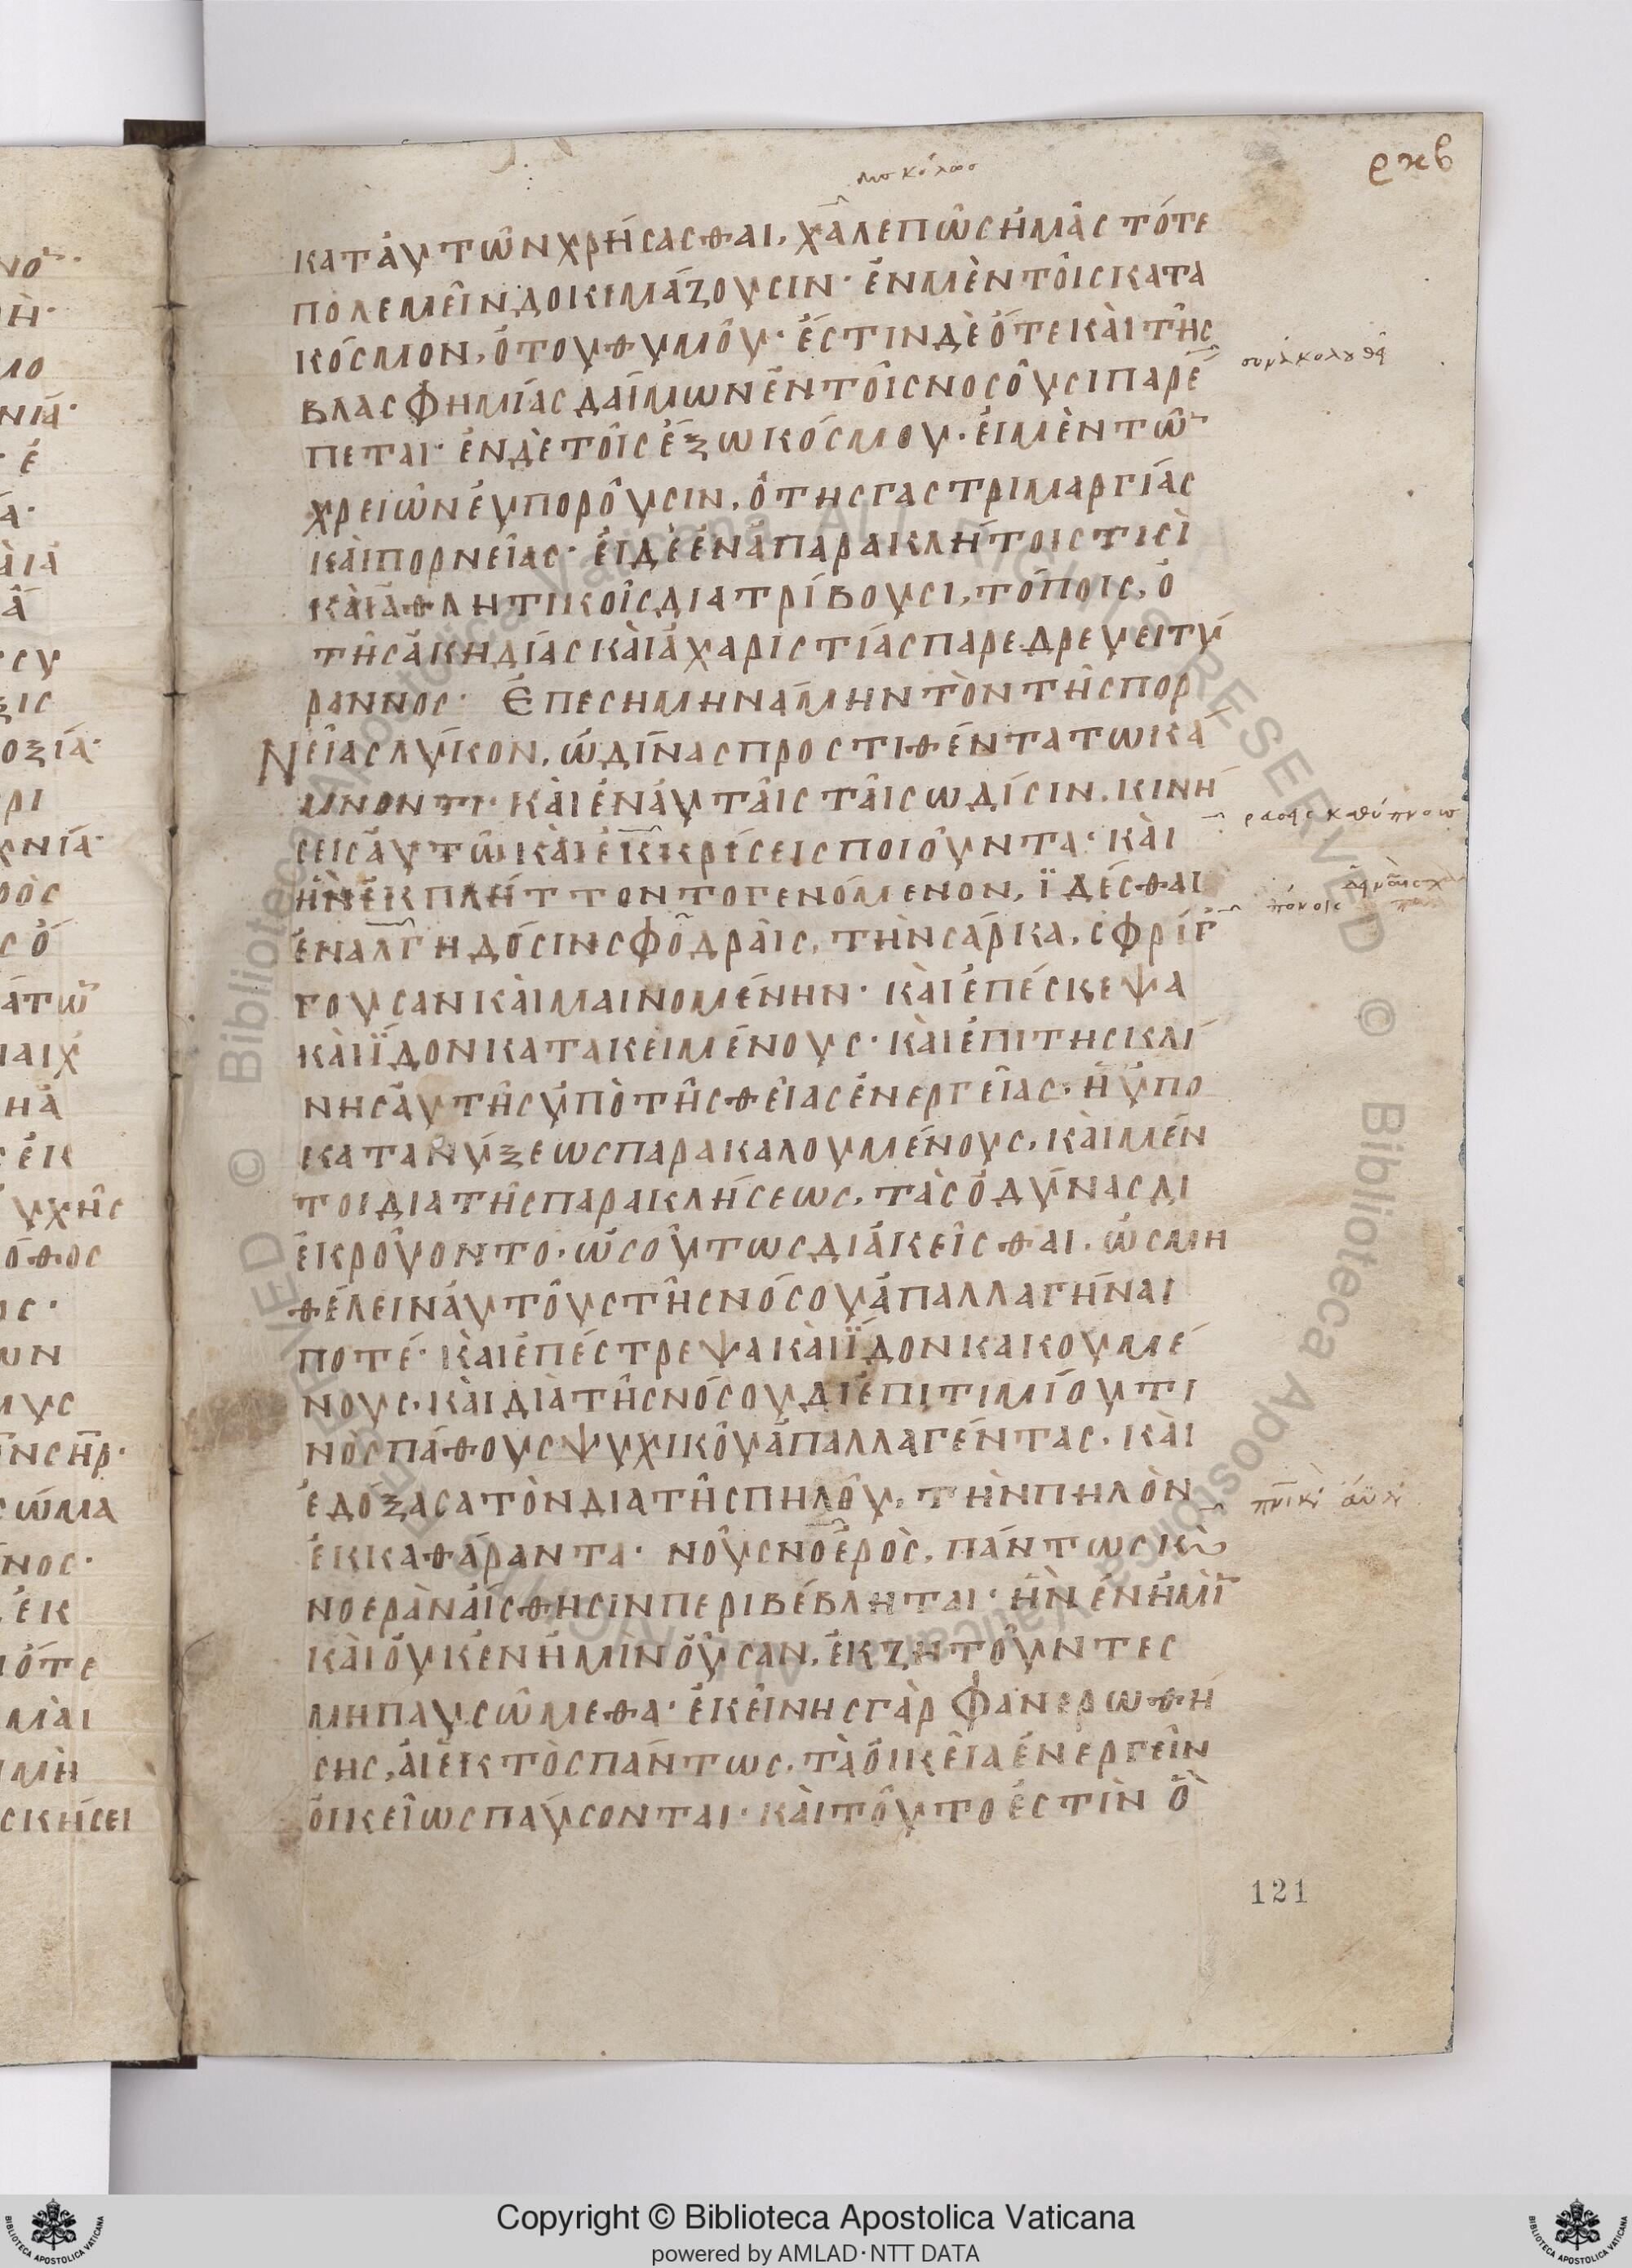 ρκβ
δυσκόλως
ΚΑΤἈΥΤΩ͂ΝΧΡΉΣΑΣΘΑΙ, ΧΑΛΕΠΩ͂ΣἩΜΑ͂Σ ΤΌΤΕ
ΠΟΛΕΜΕΙ͂ΝΔΟΚΙΜΆΖΟΥΣΙΝ· ἘΝΜῈΝΤΟΙ͂ΣΚΑΤΑ
ΚΌΣΜΟΝ, ὉΤΟΥΘΥΜΟΥ͂· ἜΣΤΙΝΔῈὍΤΕΚΑῚΤΗ͂Σ
ΒΛΑΣΦΗΜΊΑΣΔΑΊΜΩΝἘΝΤΟΙ͂ΣΝΟΣΟΥ͂ΣΙΠΑΡΈ
ΠΕΤΑΙ· ἘΝΔῈΤΟΙ͂ΣἜΞΩΚΌΣΜΟΥ· ἘΙΜῈΝΤΩ͂
ΧΡΕΙΩ͂ΝἘΥΠΟΡΟΥ͂ΣΙΝ, ὉΤΗΣΓΑΣΤΡΙΜΑΡΓΊΑΣ
ΚΑῚΠΟΡΝΕΊΑΣ· ἘΙΔῈἘΝἈΠΑΡΑΚΛΉΤΟΙΣΤΙΣῚ
ΚΑῚἈΘΛΗΤΙΚΟΙ͂ΣΔΙΑΤΡΊΒΟΥΣΙ, ΤΌΠΟΙΣ, Ὁ
ΤΗ͂ΣἈΚΗΔΊΑΣΚΑῚἈΧΑΡΙΣΤΊΑΣΠΑΡΕΔΡΕΥΕΙΤΎ
ΡΑΝΝΟΣ· ἘΠΕΣΗΜΗΝΆΜΗΝΤῸΝΤΗ͂ΣΠΟΡ
ΝΕΊΑΣΛΎΚΟΝ, ὨΔΊΝΑΣΠΡΟΣΤΙΘΈΝΤΑΤΩΚΆ
ΜΝΟΝΤΙ· ΚΑῚἘΝἈΥΤΑΙ͂ΣΤΑΙ͂ΣΩΔΊΣΙΝ, ΚΙΝΉ
ΣΕΙΣἈΥΤΩ͂ΚΑῚἘΚΚΡΊΣΕΙΣΠΟΙΟΥ͂ΝΤΑ· ΚΑῚ
ἮΝἘΚΠΛΉΤΤΟΝΤΟΓΕΝΌΜΕΝΟΝ, ΪΔΈΣΘΑΙ
ἘΝΑΛΓΗΔΌΣΙΝΣΦΟΔΡΑΙ͂Σ, ΤῊΝΣΆΡΚΑ, ΣΦΡΙΓ
ΓΟΥΣΑΝΚΑῚΜΑΙΝΟΜΈΝΗΝ· ΚΑῚἘΠΈΣΚΕΨΑ
ΚΑῚΪ́ΔΟΝΚΑΤΑΚΕΙΜΈΝΟΥΣ· ΚΑῚἘΠΙΤΗΣΚΛΊ
ΝΗΣἈΥΤΗ͂ΣὙΠῸΤΗ͂ΣΘΕΊΑΣἘΝΕΡΓΕΊΑΣ· ἪὙΠΟ
ΚΑΤΑΝΎΞΕΩΣΠΑΡΑΚΑΛΟΥΜΈΝΟΥΣ, ΚΑῚΜΈΝ
ΤΟΙΔΙΑΤΗ͂ΣΠΑΡΑΚΛΉΣΕΩΣ, ΤᾺΣὈΔΎΝΑΣΔΙ
ΕΚΡΟΎΟΝΤΟ· ὩΣΟΎΤΩΣΔΙΑΚΕΙ͂ΣΘΑΙ, ὩΣΜΗ
ΘΈΛΕΙΝἈΥΤΟῪΣΤΗ͂ΣΝΌΣΟΥἈΠΑΛΛΑΓΉΝΑΙ
ΠΟΤΈ· ΚΑῚἘΠΈΣΤΡΕΨΑΚΑῚΪ́ΔΟΝΚΑΚΟΥΜΈ
ΝΟΥΣ· ΚΑῚΔΙᾺΤΗ͂ΣΝΌΣΟΥΔΙἘΠΙΤΙΜΊΟΥΤΙ
ΝῸΣΠΆΘΟΥΣΨΥΧΙΚΟΥ͂ἈΠΑΛΛΑΓΈΝΤΑΣ· ΚΑῚ
ἘΔΟΞΑΣΑΤῸΝΔΙΑΤΗ͂ΣΠΗΛΟΥ͂, ΤῊΝΠΗΛῸΝ
ἘΚΚΑΘΆΡΑΝΤΑ· ΝΟΥ͂ΣΝΟΕΡῸΣ, ΠΆΝΤΩΣΚᾺ
ΝΟΕΡᾺΝἈΊΣΘΗΣΙΝΠΕΡΙΒΈΒΛΗΤΑΙ· ἫΝἘΝἩΜΙ͂
ΚΑῚὈΥΚἘΝἩΜΙ͂ΝὈΥ͂ΣΑΝ, ἘΚΖΗΤΟΥ͂ΝΤΕΣ
ΜΗΠΑΥΣΩ͂ΜΕΘΑ· ἘΚΕΊΝΗΣΓᾺΡΦΑΝΕΡΩΘΉ
ΣΗΣ, ἉΙἘΚΤῸΣΠΆΝΤΩΣ, ΤᾺὈΙΚΕΙ͂ΑἘΝΕΡΓΕΙ͂Ν
ὈΙΚΕΊΩΣΠΑΎΣΟΝΤΑΙ· ΚΑῚΤΟΥ͂ΤΟἘΣΤῚΝ Ὃ
συνακολουθεῖ
πόνοις
121
Copyright © Biblioteca Apostolica Vaticana
powered by AMLAD·NTT DATA